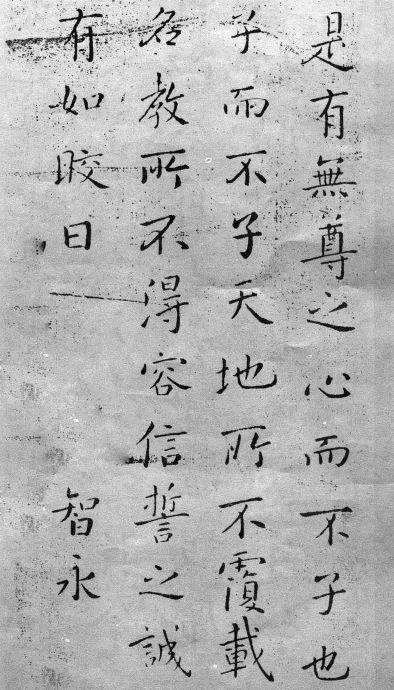 是有無尊之心而不子也
子而不子天地所不覆載
名教所不得容信誓之誠
有如晈日
智永